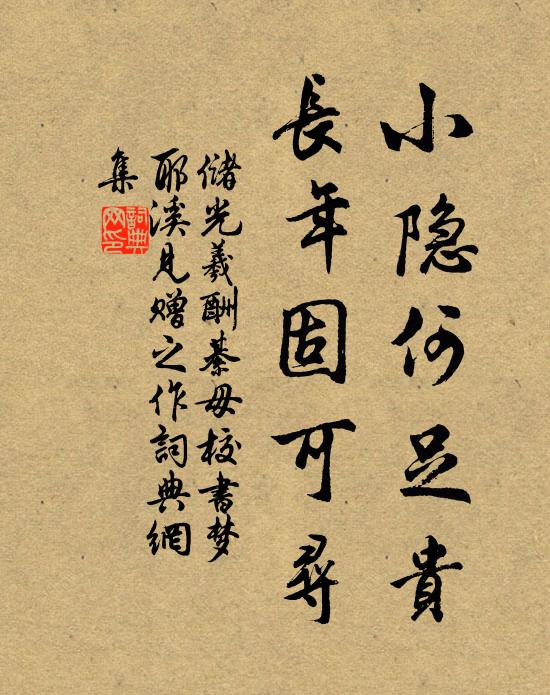 小隐何足貴
長年固可尋
儲光羲酬綦毋校書梦
耶溪見贈之作詞典網
集
詞典
网印